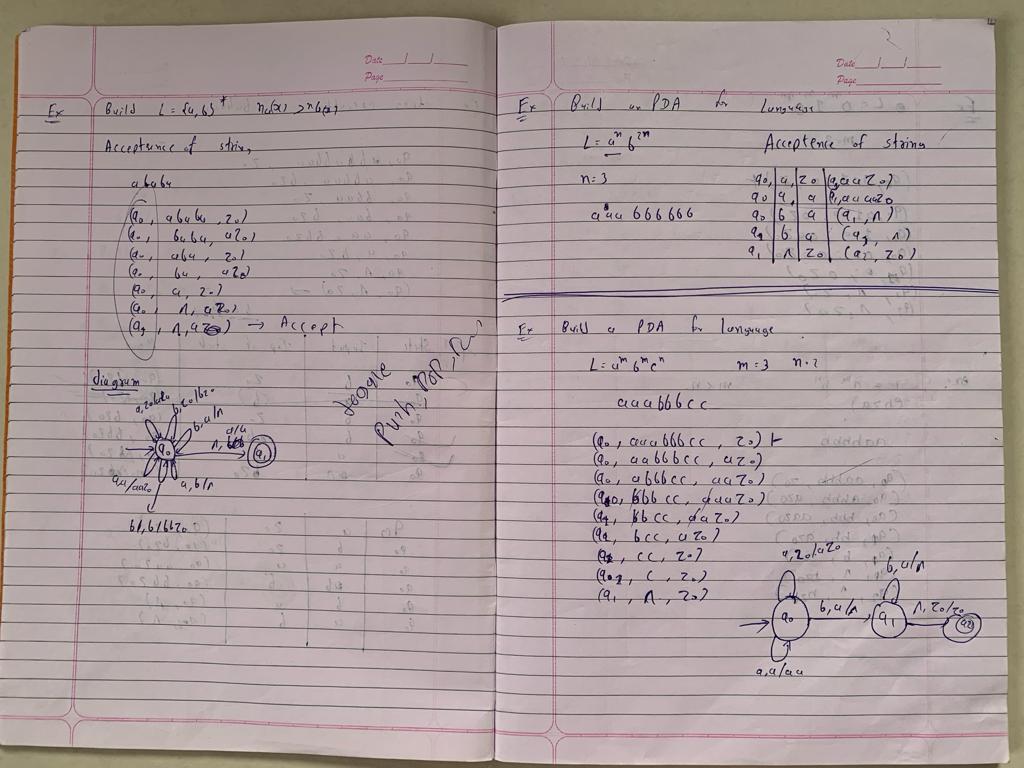 Date / /
Page
Ex Build L = {a, b}* na(x) > nb(x)
Acceptance of string
ababa
(q0, ababa, z0)
(q0, baba, az0)
(q0, aba, z0)
(q0, ba, az0)
(q0, a, z0)
(q0, Λ, az0)
(q1, Λ, az0) → Accept
diagram
b, z0/bz0
b, a/Λ
a/a
Λ,
q0
q1
aa/aaz0
a, b/Λ
b1, b/bbz0
Push, Pop,
Date / /
Page
Ex Build an PDA for Language
L = aⁿ b²ⁿ Acceptence of string
n=3
aaa bbbbbb
q0, a, z0 (q, aaz0)
q0 a, a q1, aaaaz0
q0 b a (q1, Λ)
q1 b a (q1, Λ)
q1 Λ z0 (q2, z0)
Ex Build a PDA for language
L = aᵐ bᵐ cⁿ m=3 n=2
aaabbbcc
(q0, aaabbbcc, z0) ⊢
(q0, aabbbcc, az0)
(q0, abbbcc, aaz0)
(q0, bbbcc, aaaz0)
(q1, bbcc, aaz0)
(q1, bcc, az0)
(q1, cc, z0)
(q1, c, z0)
(q1, Λ, z0)
a, z0/az0
b, a/Λ
q0 b, a/Λ q1 Λ, z0/z0 q2
a, a/aa